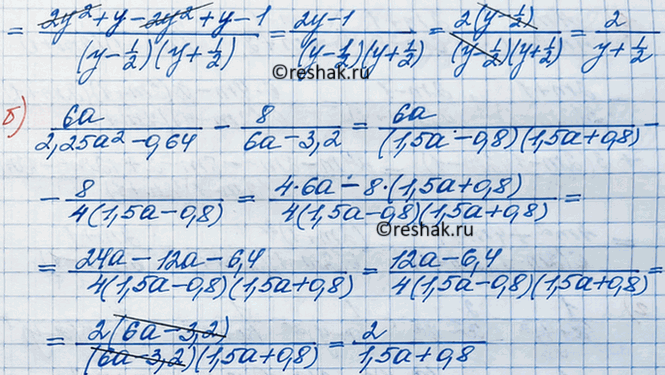 = (2y² + y - 2y² + y - 1)/((y - 1/2)(y + 1/2)) = (2y - 1)/((y - 1/2)(y + 1/2)) = 2(y - 1/2)/((y - 1/2)(y + 1/2)) = 2/(y + 1/2)
©reshak.ru
б) 6a/(2,25a² - 0,64) - 8/(6a - 3,2) = 6a/((1,5a - 0,8)(1,5a + 0,8)) -
- 8/(4(1,5a - 0,8)) = (4·6a - 8·(1,5a + 0,8))/(4(1,5a - 0,8)(1,5a + 0,8)) =
©reshak.ru
= (24a - 12a - 6,4)/(4(1,5a - 0,8)(1,5a + 0,8)) = (12a - 6,4)/(4(1,5a - 0,8)(1,5a + 0,8)) =
= 2(6a - 3,2)/((6a - 3,2)(1,5a + 0,8)) = 2/(1,5a + 0,8)